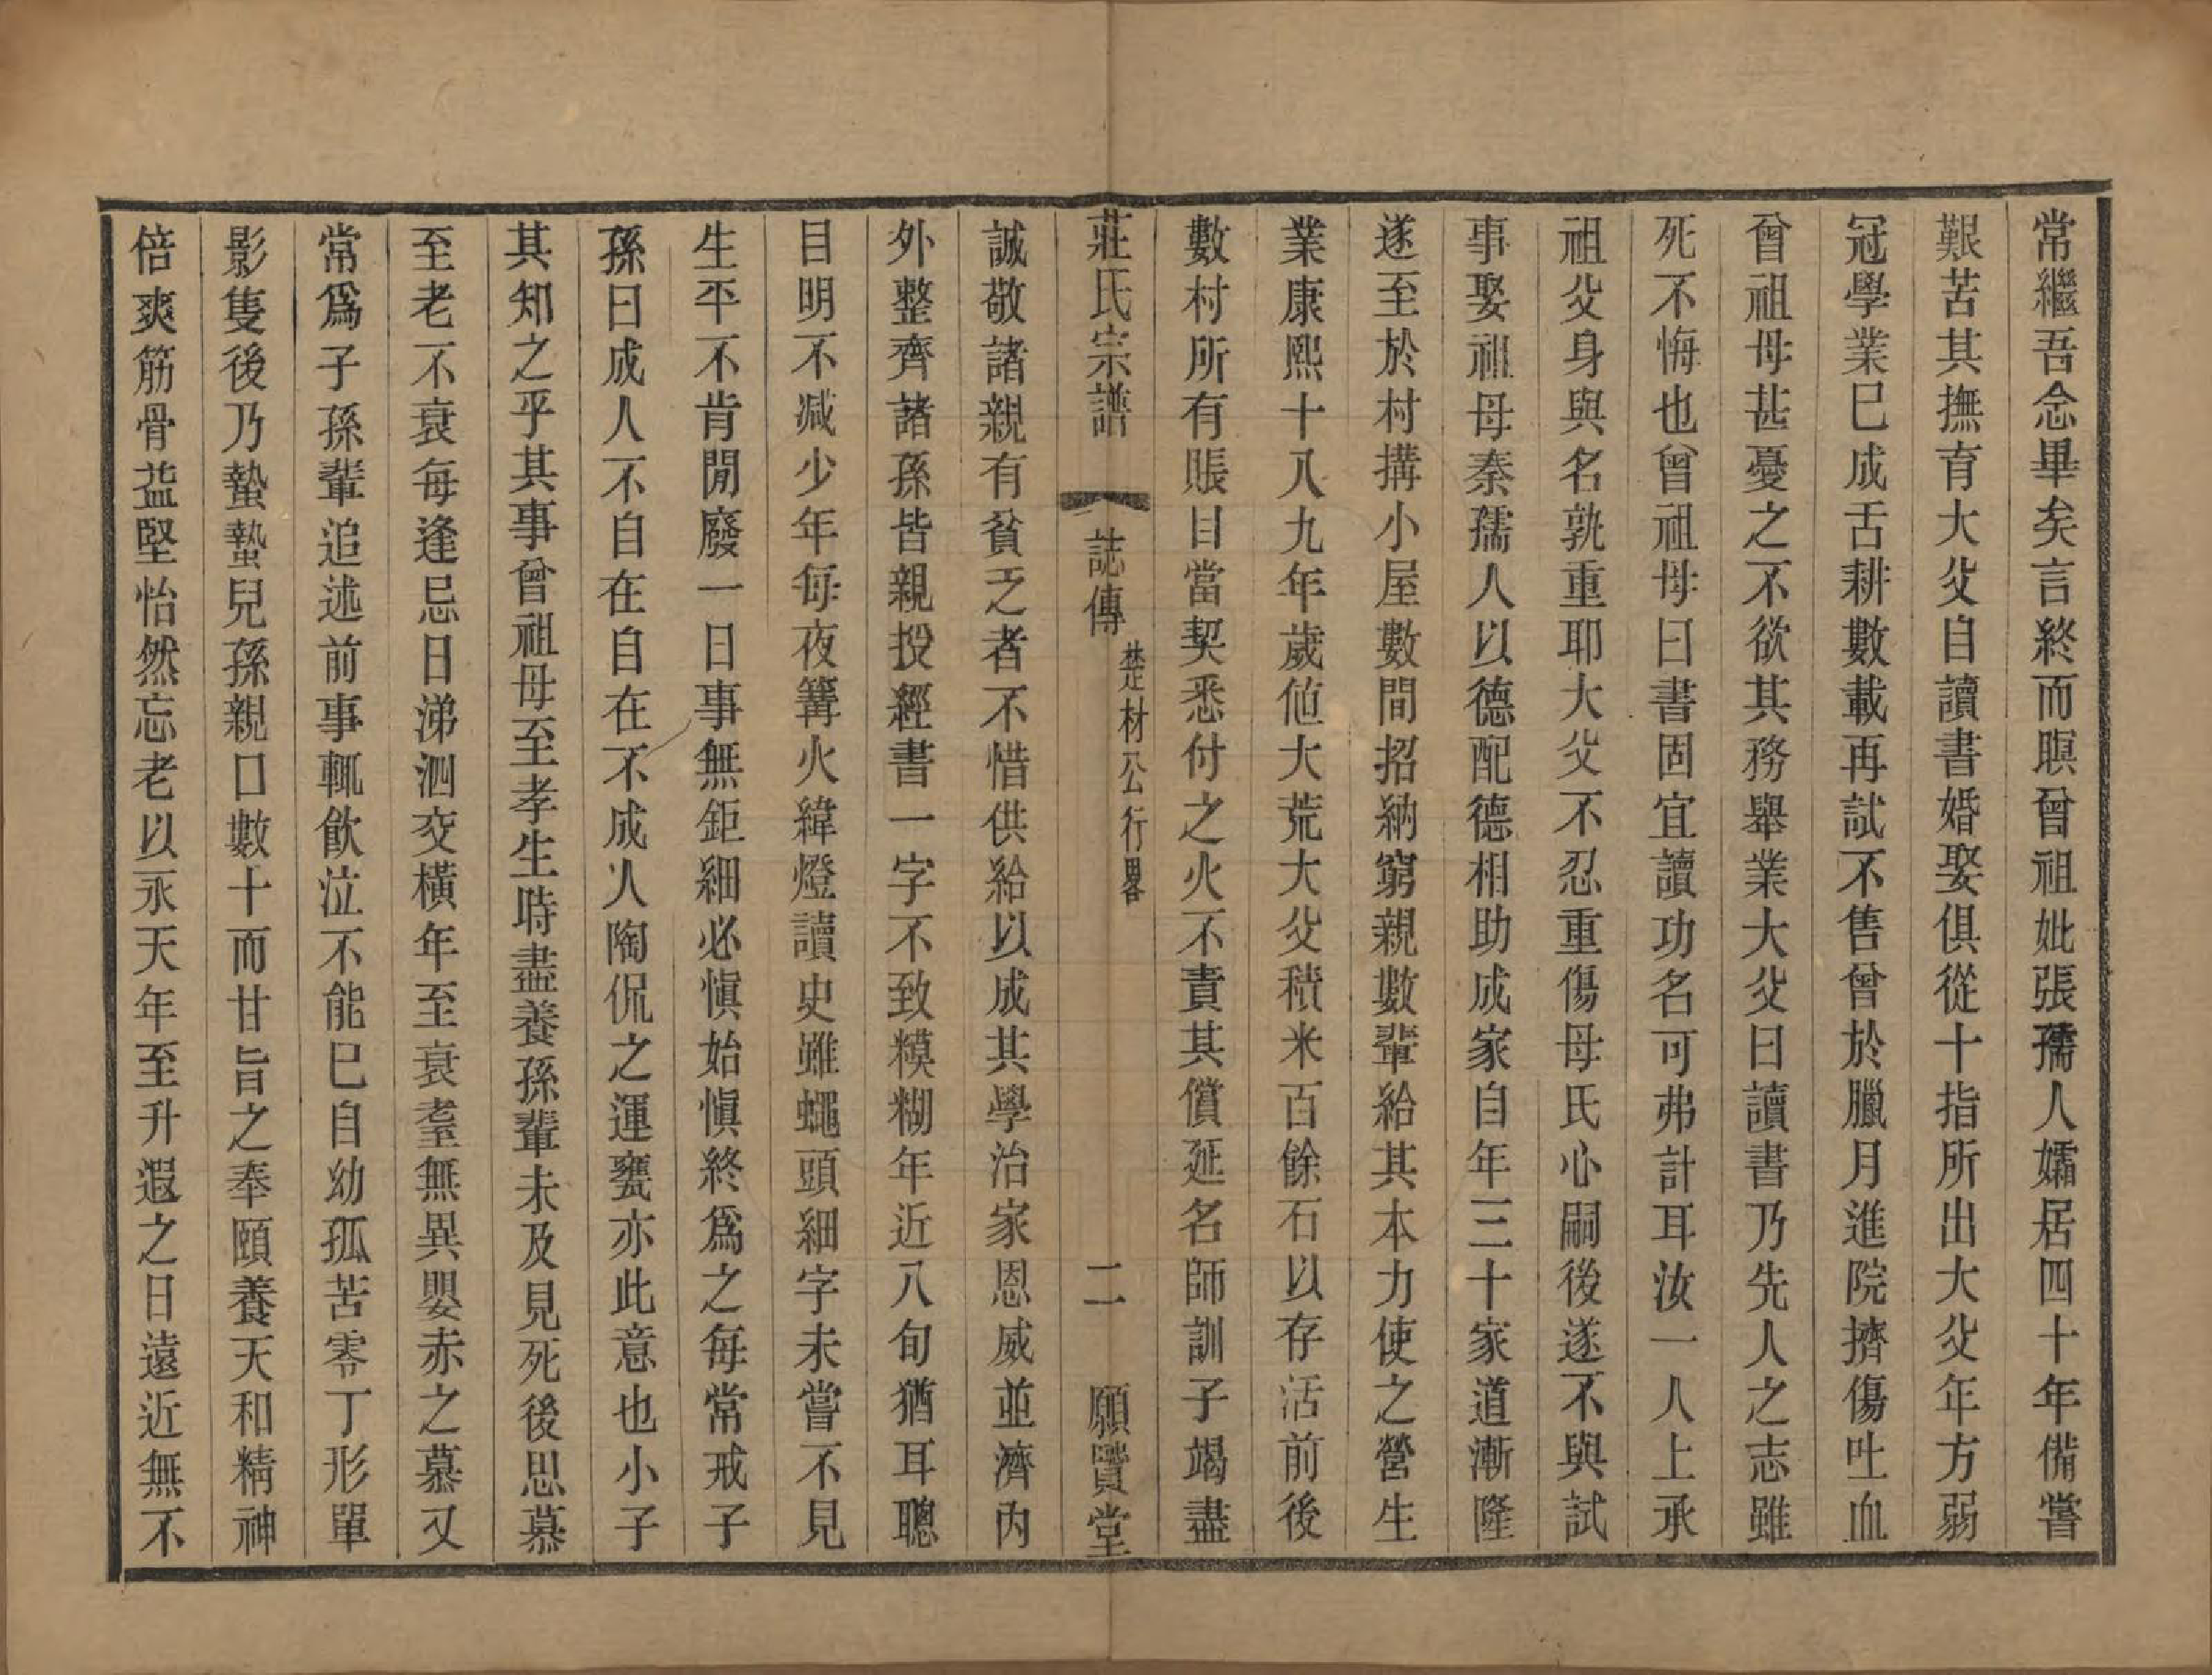 常繼吾念畢矣言終而瞑曾祖妣張孺人孀居四十年備嘗
艱苦其撫育大父自讀書婚娶俱從十指所出大父年方弱
冠學業已成舌耕數載再試不售曾於臘月進院擠傷吐血
曾祖母甚憂之不欲其務舉業大父曰讀書乃先人之志雖
死不悔也曾祖母曰書固宜讀功名可弗計耳汝一人上承
祖父身與名孰重耶大父不忍重傷母氏心嗣後遂不與試
事娶祖母秦孺人以德配德相助成家自年三十家道漸隆
遂至於村搆小屋數間招納窮親數輩給其本力使之營生
業康熙十八九年歲値大荒大父積米百餘石以存活前後
數村所有賬目當契悉付之火不責其償延名師訓子竭盡
莊氏宗譜 誌傳 楚材公行畧 二 願賢堂
誠敬諸親有貧乏者不惜供給以成其學治家恩威並濟內
外整齊諸孫皆親授經書一字不致糢糊年近八旬猶耳聰
目明不減少年每夜篝火緯燈讀史雖蠅頭細字未嘗不見
生平不肯閒廢一日事無鉅細必愼始愼終爲之每常戒子
孫曰成人不自在自在不成人陶侃之運甓亦此意也小子
其知之乎其事曾祖母至孝生時盡養孫輩未及見死後思慕
至老不衰每逢忌日涕泗交橫年至衰耋無異嬰赤之慕又
常爲子孫輩追述前事輒飮泣不能已自幼孤苦零丁形單
影隻後乃蟄蟄兒孫親口數十而甘旨之奉頤養天和精神
倍爽筋骨益堅怡然忘老以永天年至升遐之日遠近無不